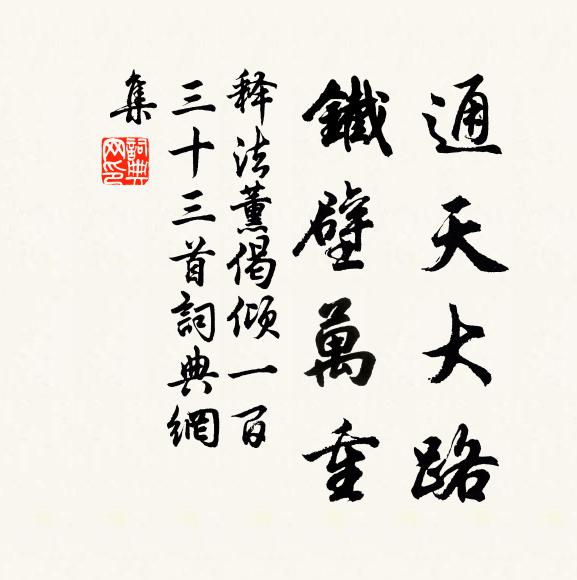 通天大路
鐵壁萬重
释法薰偈倾一百
三十三首詞典網
集
詞典
网印